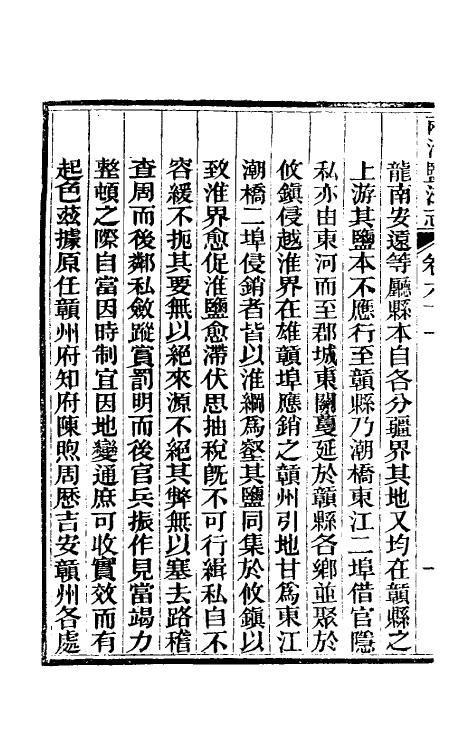 龍南安遠等廳縣本自各分疆界其地又均在贛縣之
上游其鹽本不應行至贛縣乃潮橋東江二埠借官隱
私亦由東河而至郡城東關蔓延於贛縣各鄉並聚於
攸鎮侵越淮界在雄贛埠應銷之贛州引地甘爲東江
潮橋二埠侵銷者皆以淮綱爲壑其鹽同集於攸鎮以
致淮界愈促淮鹽愈滯伏思抽稅旣不可行緝私自不
容緩不扼其要無以絕來源不絕其弊無以塞去路稽
查周而後鄰私斂蹤賞罰明而後官兵振作見當竭力
整頓之際自當因時制宜因地變通庶可收實效而有
起色兹據原任贛州府知府陳煦周歷吉安贛州各處